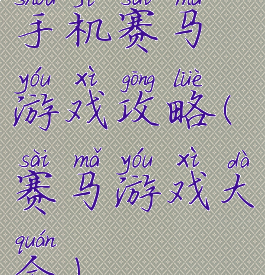 shǒu jī sài mǎ
手机赛马
yóu xì gōng lüè
游戏攻略(
sài mǎ yóu xì dà
赛马游戏大
quán
全)